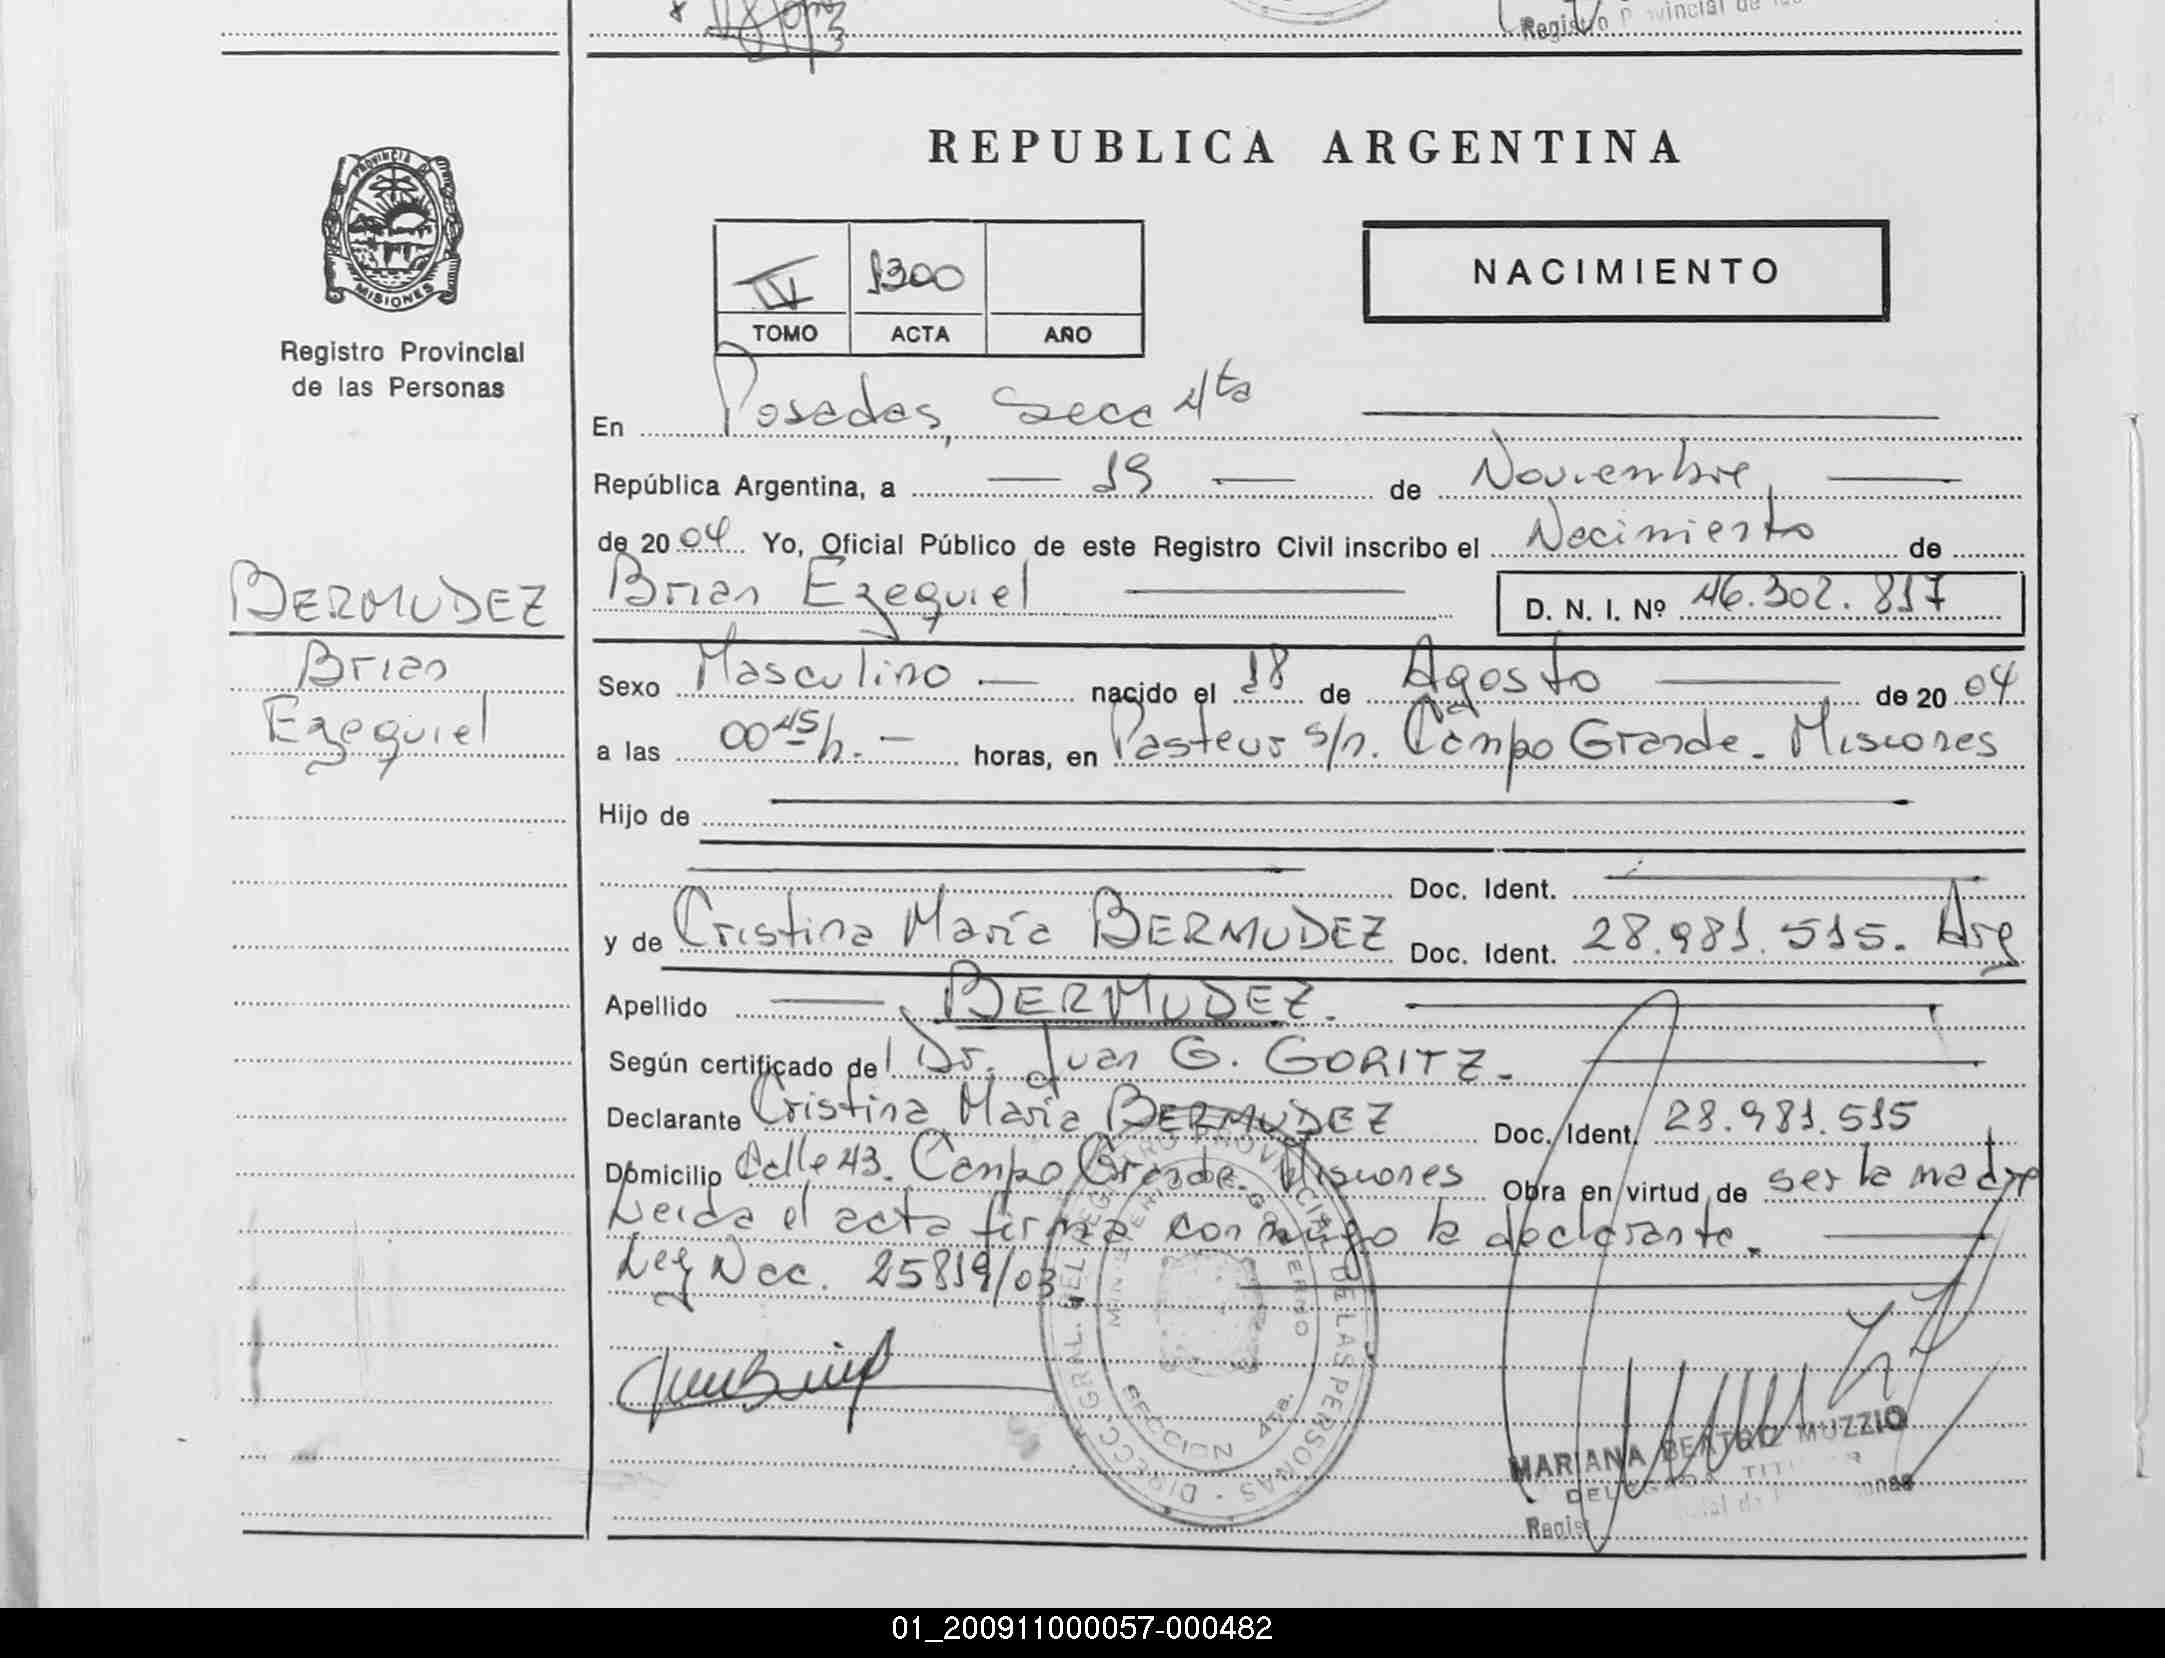 Registro Provincial de las
REPUBLICA ARGENTINA
PROVINCIA DE
MISIONES
Registro Provincial
de las Personas
IV 1300
TOMO ACTA AÑO
NACIMIENTO
En Posadas, Secc 4ta
República Argentina, a 19 de Noviembre,
de 2004 Yo, Oficial Público de este Registro Civil inscribo el Nacimiento de
BERMUDEZ
Brian
Ezequiel
Brian Ezequiel D. N. I. Nº 46.302.817
Sexo Masculino nacido el 18 de Agosto de 2004
a las 00 45 h. - horas, en Pasteur s/n. Campo Grande - Misiones
Hijo de
Doc. Ident.
y de Cristina María BERMUDEZ Doc. Ident. 28.981.515. Arg
Apellido BERMUDEZ.
Según certificado del Dr. Juan G. GORITZ.
Declarante Cristina María BERMUDEZ Doc. Ident. 28.981.515
Domicilio Calle 43. Campo Grande. Misiones Obra en virtud de ser la madre
Leida el acta firma conmigo la declarante.
Ley Nac. 25819/03
DIRECC. GRAL. DEL REGISTRO PROVINCIAL DE LAS PERSONAS
MINISTERIO DE GOBIERNO
SECCION 4ta.
MARIANA BEATRIZ MUZZIO
DELEGADA TITULAR
01_200911000057-000482